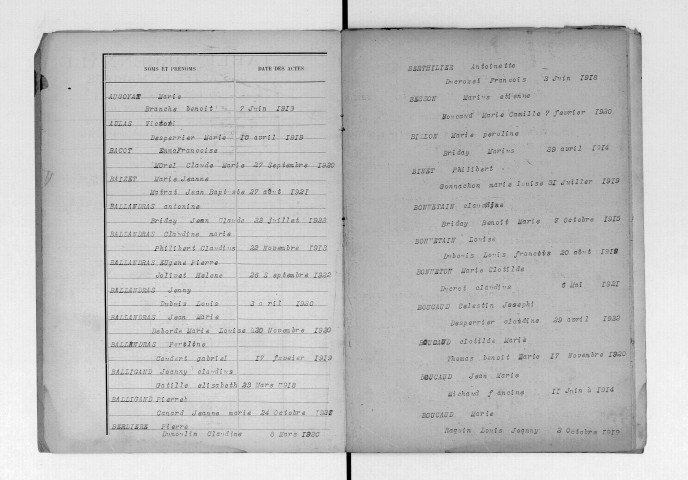 NOMS ET PRÉNOMS DATE DES ACTES
AUGOYAT Marie
Branche benoit 7 Juin 1919
AULAS
Desperrier Marie 10 avril 1919
BACOT EmmaFrancoise
MOrel Claude Marie 27 Septembre 1920
BAIZET MarieJeanne
Mairat Jean Baptiste 27 aout 1921
BALLANDRAS antonine
Briday Jean Claude 28 juillet 1923
BALLANDRAS Claudine marie
Philibert Claudius 22 Novembre 1913
BALLANDRAS EUgene Pierre
Jolivet Helene 26 Septembre 1922
BALLANDRAS Jenny
Dubuis Louis 2 avril 1920
BALLANDRAS Jean Marie
Deborde Marie Louise 20 Novembre 1920
BALLANDRAS
gabriel 17 fevrier 1919
BALLIGAND Joanny claudius
Gatille elisabeth 25 Mars 1918
BALLIGAND Pierret
Canard Jeanne marie 24 Octobre
BERLIERE Pierre
Dumoulin Claudine 8 Mars 1920
BERTHILIER Antoinette
Ducrozet Francois 3 Juin 1918
BESSON Marius etienne
Boucaud Marie Camille 7 fevrier 1920
BILLON Marie
Briday Marius 29 avril 1914
BINET Philibert
Gonnachon marie louise 31 Juillet 1919
BONNETAIN
Briday Benoit Marie 7 Octobre 1913
BONNETAIN Louise
Dubouis Louis 20 aout 1919
Marie Clotilde
Ducrot claudius 6 Mai 1921
BOUCAUD Celestin Joseph
Desperrier claudine 29 avril 1920
BOUCAUD clotilde Marie
Thomas benoit Marie 17 Novembre 1920
BOUCAUD Jean Marie
Michaud 1914
BOUCAUD Marie
Louis Joanny 8 Octobre